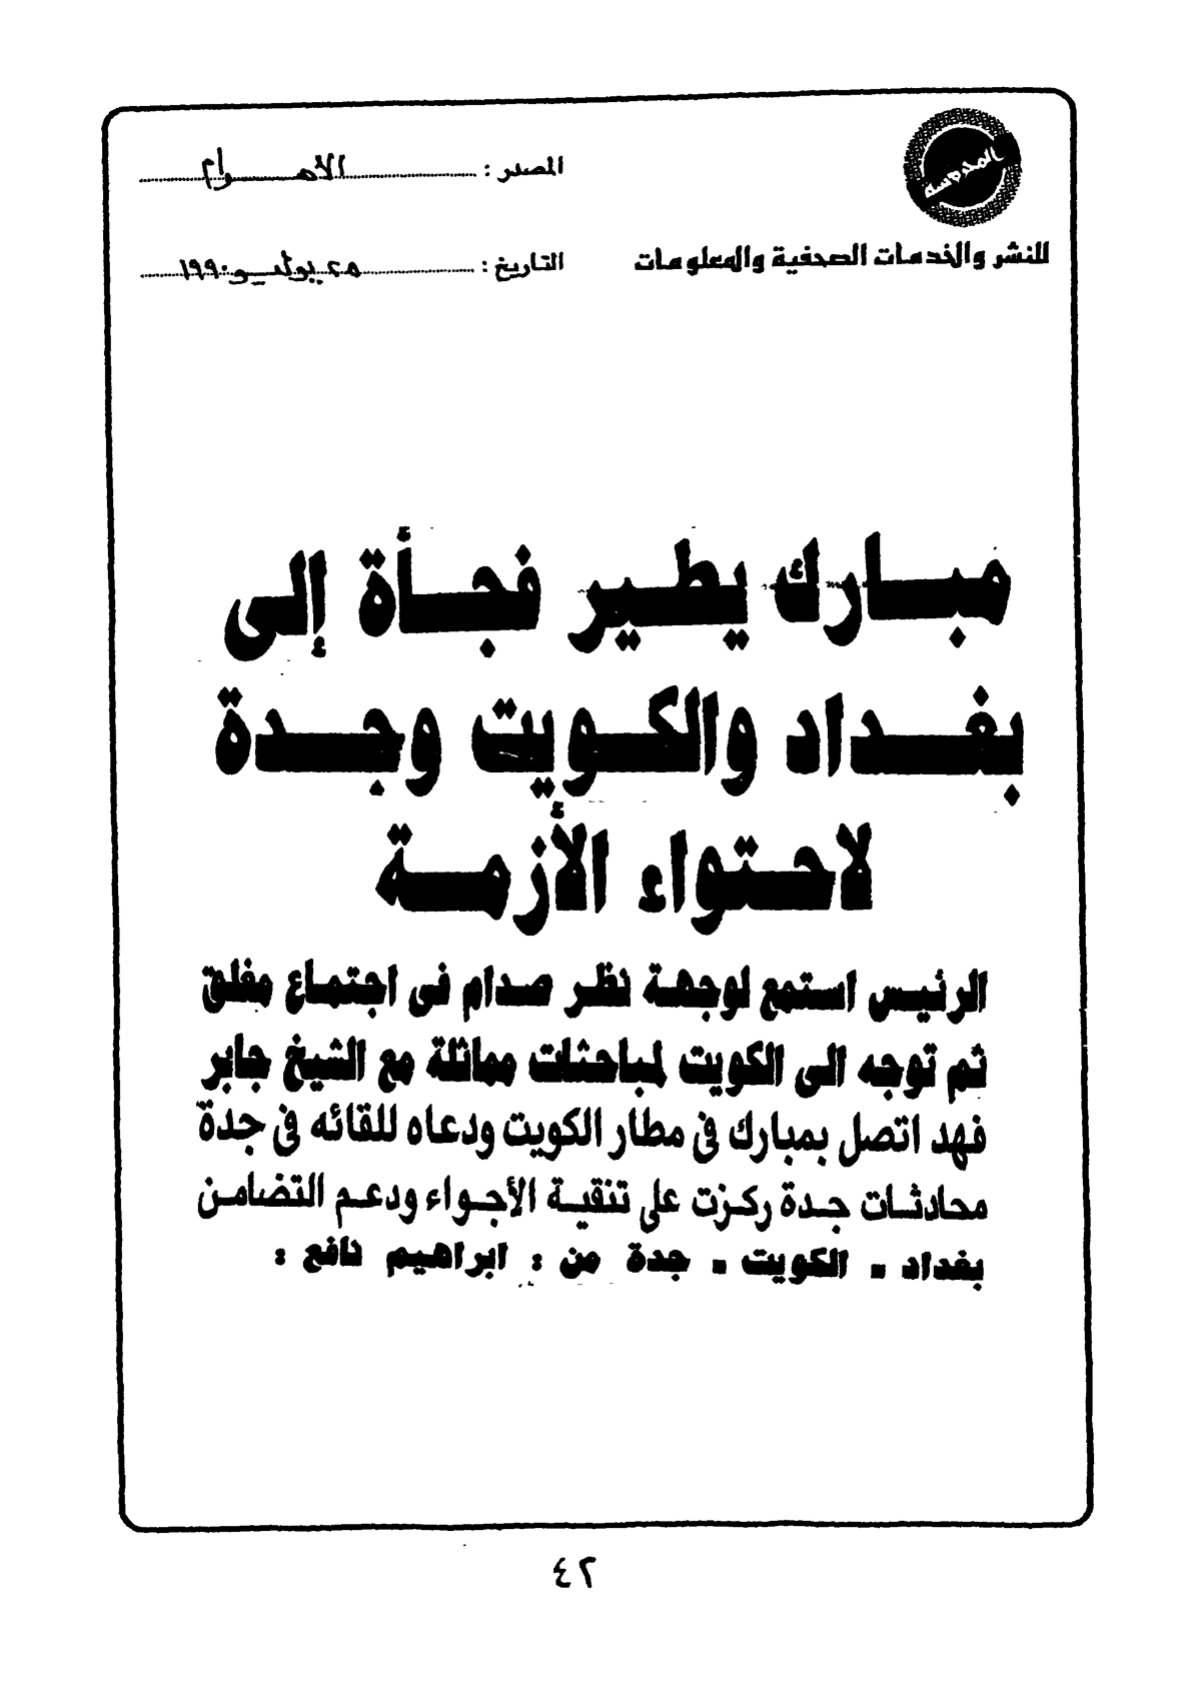 المدرسة
المصدر : الأهـــرام
للنشر والخدمات الصحفية والمعلومات
التاريخ : ٢٥ يوليو ١٩٩٠
مبارك يطير فجأة إلى
بغداد والكويت وجدة
لاحتواء الأزمة
الرئيس استمع لوجهة نظر صدام فى اجتماع مغلق
ثم توجه الى الكويت لمباحثات مماثلة مع الشيخ جابر
فهد اتصل بمبارك فى مطار الكويت ودعاه للقائه فى جدة
محادثات جدة ركزت على تنقية الأجواء ودعم التضامن
بغداد - الكويت - جدة من : ابراهيم نافع :
٤٢